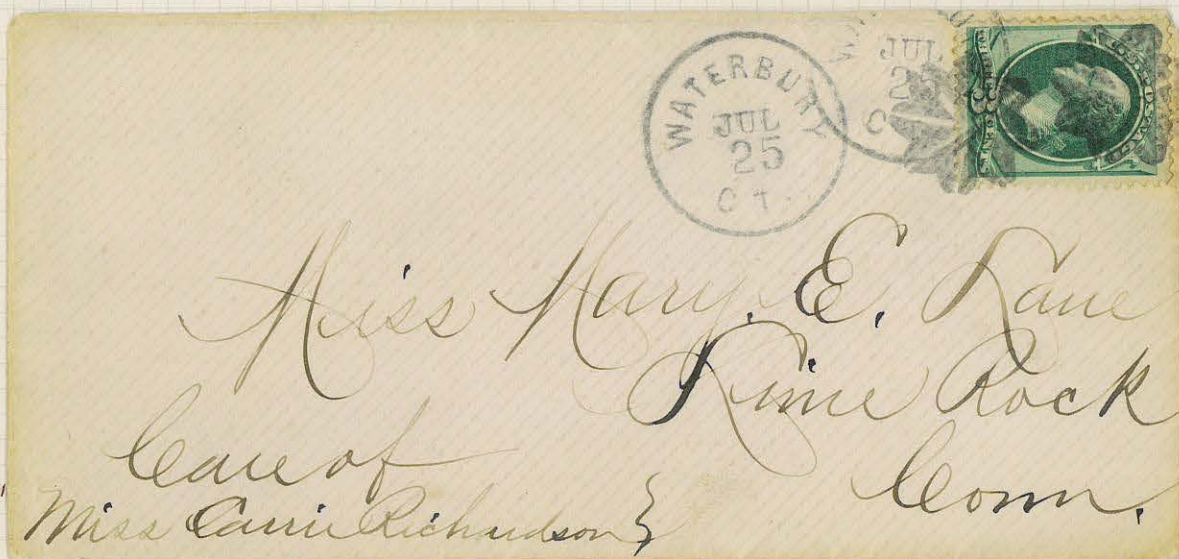 WATERBURY
JUL
25
CT.
JUL
25
C
Miss Mary. E. Lane
Lime Rock
Conn.
Care of
Miss Carrie Richardson